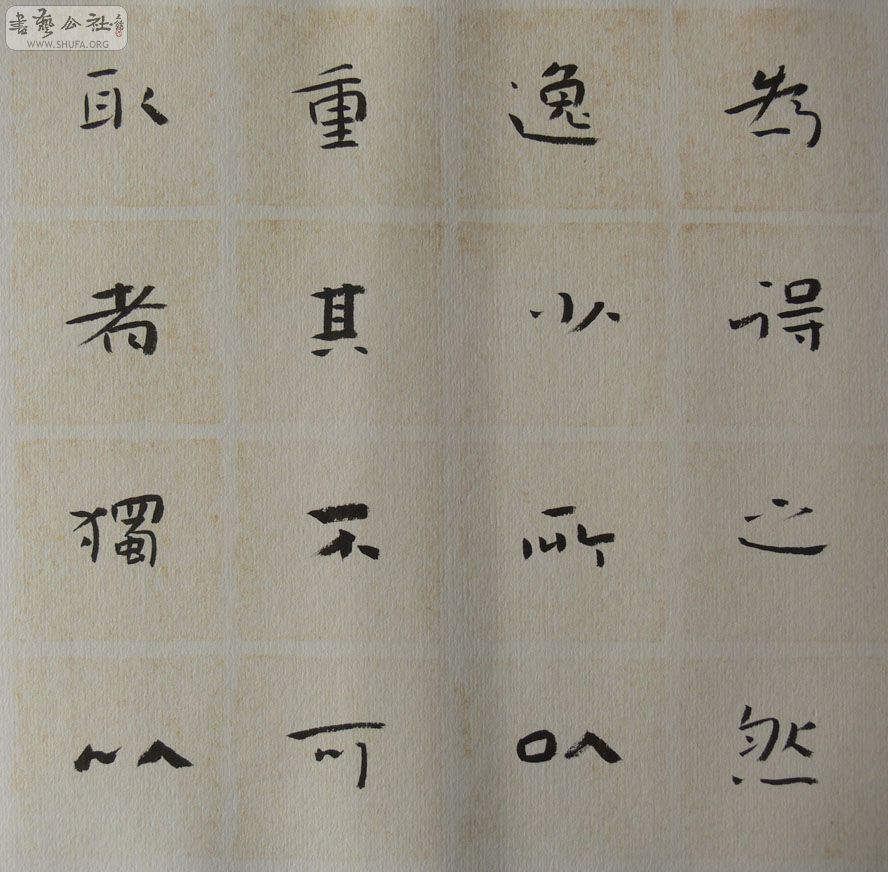 書藝公社
WWW.SHUFA.ORG
為得之然
逸少所以
重其不可
取者獨以